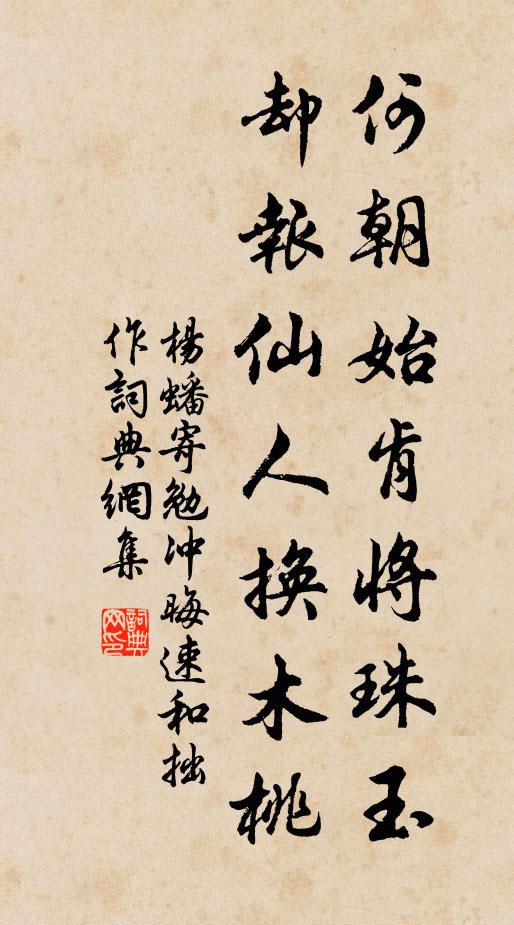 何朝始肯将珠玉
却報仙人換木桃
楊蟠寄勉冲晦速和拙
作詞典網集
詞典网印